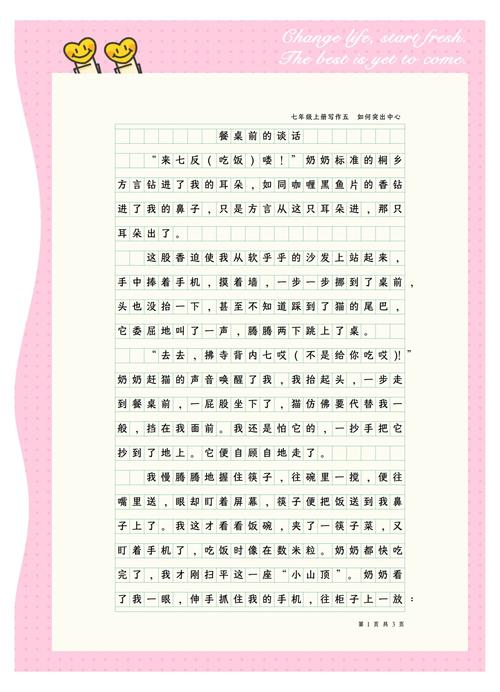 Change life, start fresh.
The best is yet to come.
七年级上册写作五 如何突出中心
餐桌前的谈话
“来七反(吃饭)喽!”奶奶标准的桐乡
方言钻进了我的耳朵,如同咖喱黑鱼片的香钻
进了我的鼻子,只是方言从这只耳朵进,那只
耳朵出了。
这股香迫使我从软乎乎的沙发上站起来,
手中捧着手机,摸着墙,一步一步挪到了桌前,
头也没抬一下,甚至不知道踩到了猫的尾巴,
它委屈地叫了一声,腾腾两下跳上了桌。
“去去,拂寺背内七哎(不是给你吃哎)!”
奶奶赶猫的声音唤醒了我,我抬起头,一步走
到餐桌前,一屁股坐下了,猫仿佛要代替我一
般,挡在我面前。我还是怕它的,一抄手把它
抄到了地上。它便自顾自地走了。
我慢腾腾地握住筷子,往碗里一搅,便往
嘴里送,眼却盯着屏幕,筷子便把饭送到我鼻
子上了。我这才看看饭碗,夹了一筷子菜,又
盯着手机了,吃饭时像在数米粒。奶奶都快吃
完了,我才刚扫平这一座“小山顶”。奶奶看
了我一眼,伸手抓住我的手机,往柜子上一放:
第 1 页 共 3 页